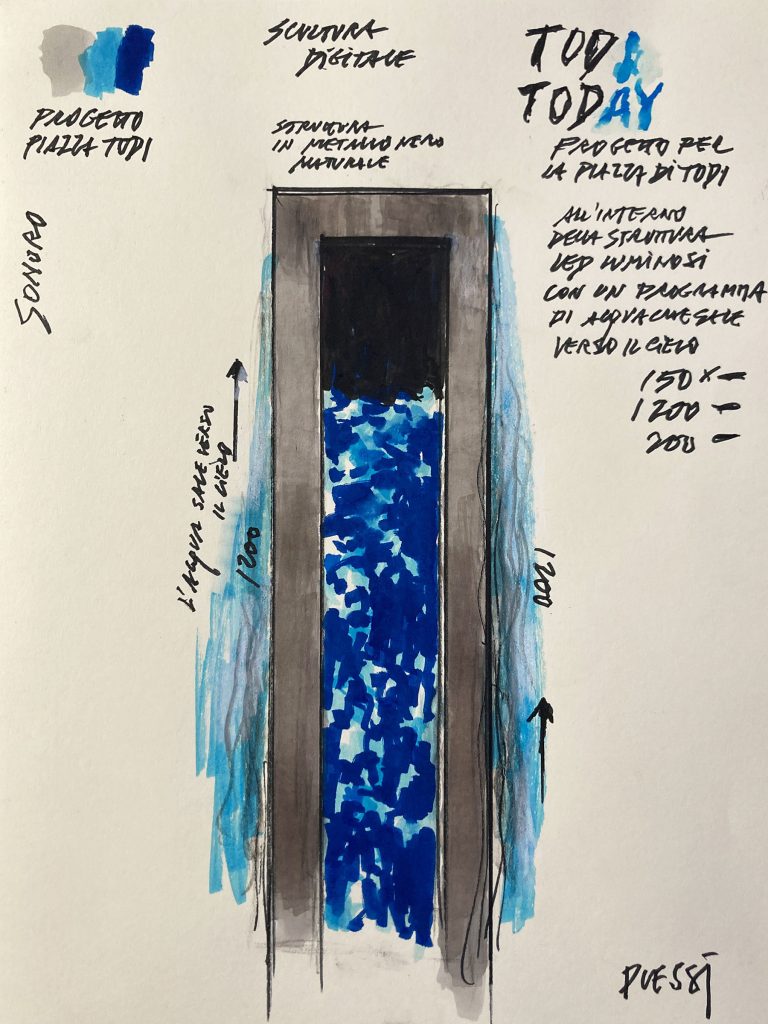 PROGETTO
PIAZZA TODI
SCULTURA
DIGITALE
STRUTTURA
IN METALLO NERO
NATURALE
TODI
TODAY
PROGETTO PER
LA PIAZZA DI TODI
ALL'INTERNO
DELLA STRUTTURA
LED LUMINOSI
CON UN PROGRAMMA
DI ACQUA CHE SALE
VERSO IL CIELO
150 x –
1200 –
200 –
SONORO
L'ACQUA SALE VERSO
IL CIELO
1200
1200
PLESSI